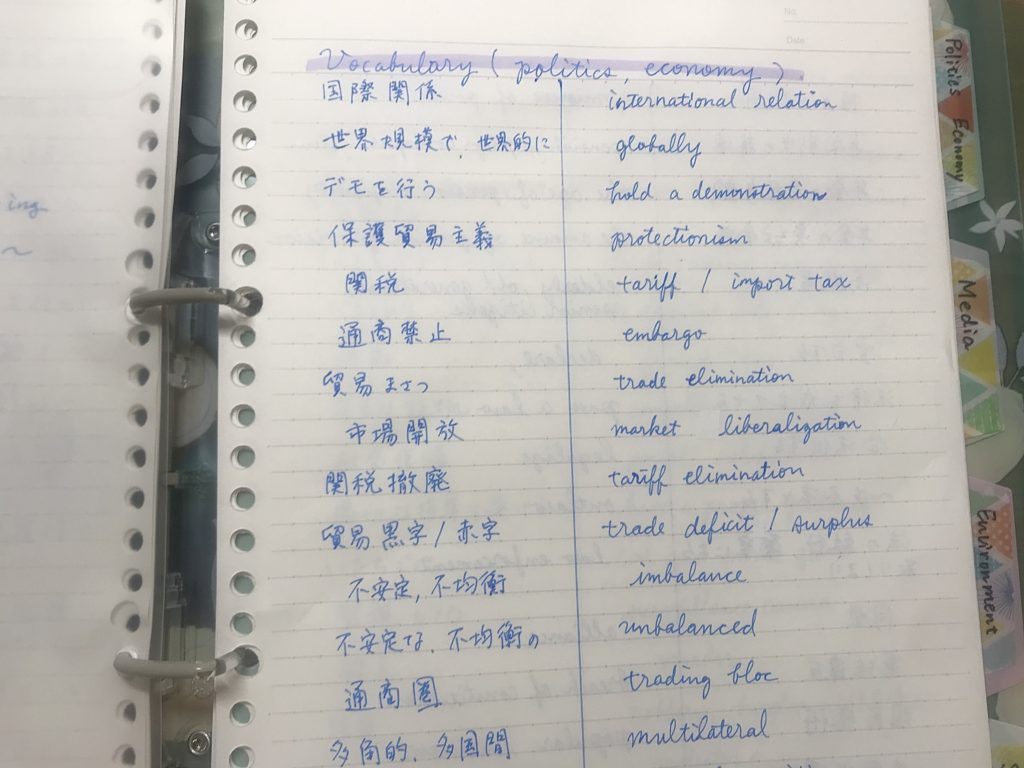 No.
Date
Vocabulary ( politics, economy )
国際関係 international relation
世界規模で, 世界的に globally
デモを行う hold a demonstration
保護貿易主義 protectionism
関税 tariff / import tax
通商禁止 embargo
貿易まさつ trade elimination
市場開放 market liberalization
関税撤廃 tariff elimination
貿易黒字/赤字 trade deficit / surplus
不安定, 不均衡 imbalance
不安定な, 不均衡の unbalanced
通商圏 trading bloc
多角的, 多国間 multilateral
ing
~
Politics Economy
Media
Environment